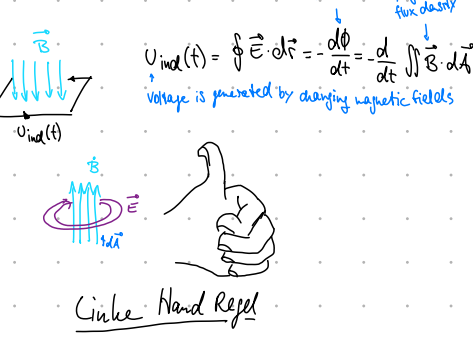 flux density
B⃗
U_ind(t) = ∮ E⃗ · dr⃗ = - dϕ/dt = - d/dt ∬ B⃗ · dA⃗
voltage is generated by changing magnetic fields
U_ind(t)
Ḃ
E⃗
dA⃗
Linke Hand Regel